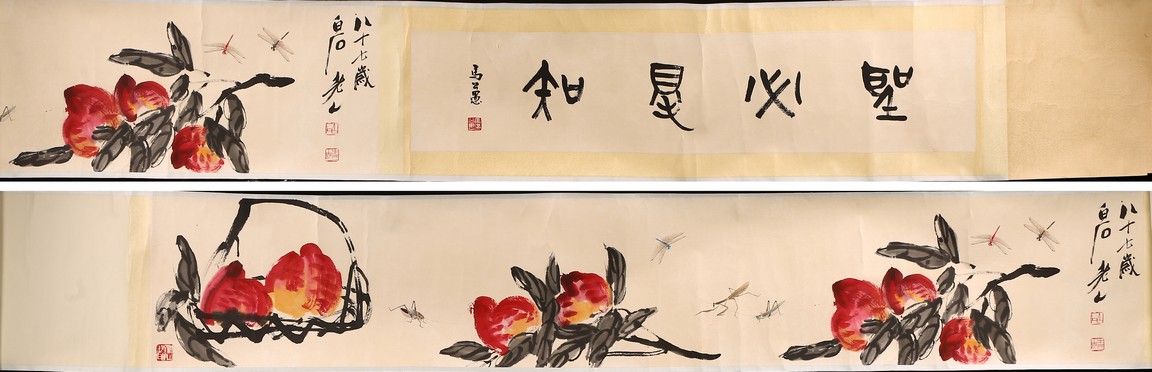 聖必是知
馬公愚
八十七歲
白石老人
八十七歲
白石老人